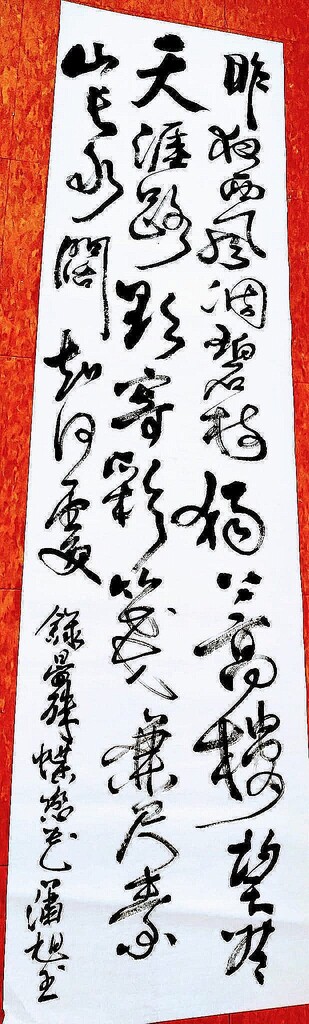 昨夜西風凋碧樹獨上高樓望盡
天涯路欲寄彩箋兼尺素
山長水闊知何處
錄晏殊蝶戀花蒲旭書